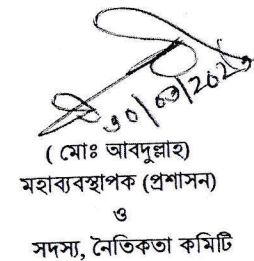 ৩০/০৩/202৩
( মোঃ আবদুল্লাহ)
মহাব্যবস্থাপক (প্রশাসন)
ও
সদস্য, নৈতিকতা কমিটি